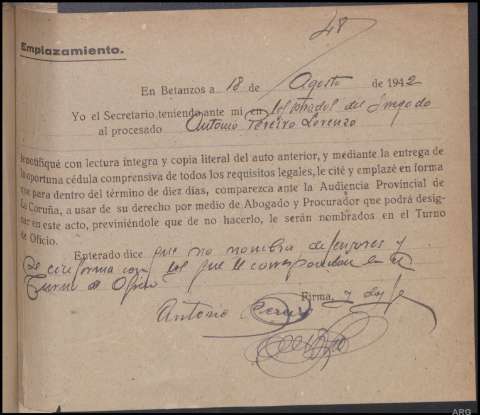 48
Emplazamiento.
En Betanzos a 18 de Agosto de 1942
Yo el Secretario teniendo ante mi en los estrados del Juzgado
al procesado Antonio Pereiro Lorenzo
le notifiqué con lectura integra y copia literal del auto anterior, y mediante la entrega de
la oportuna cédula comprensiva de todos los requisitos legales, le cité y emplazé en forma
que para dentro del término de diez días, comparezca ante la Audiencia Provincial de
La Coruña, a usar de su derecho por medio de Abogado y Procurador que podrá desig-
nar en este acto, previniéndole que de no hacerlo, le serán nombrados en el Turno
de Oficio.
Enterado dice que no nombra defensores y
se conforma con los que le correspondan en el
Turno de Oficio
Firma, y doy fe
Antonio
ARG